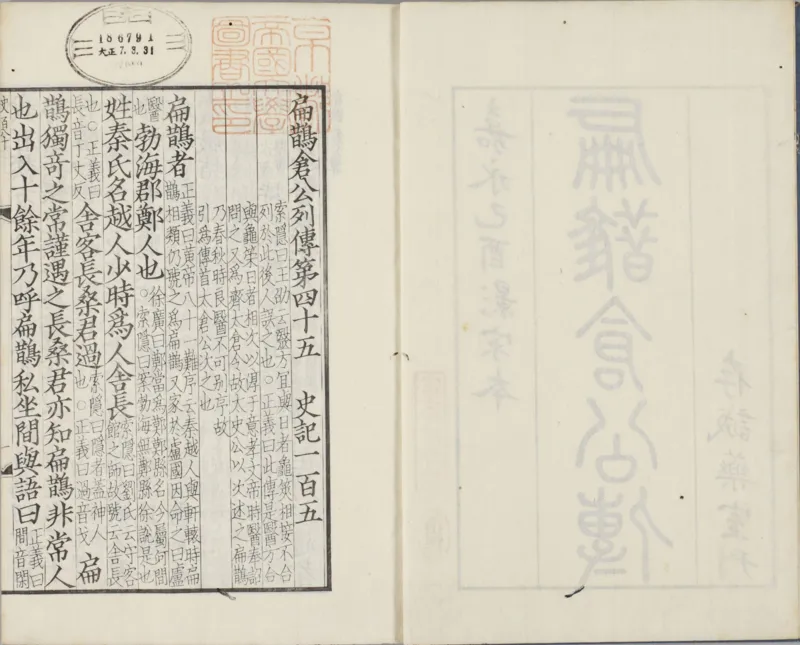 嘉永己酉影宋本
扁鵲倉公傳
存誠藥室刊
186791
大正7.3.31
京都
帝國大學
圖書之印
扁鵲倉公列傳第四十五 史記一百五
索隱曰王劭云醫方宜與日者龜筴相接不合
列於此後人誤之也○正義曰此傳是醫方合
與龜筴日者相次以淳于意孝文帝時醫奉詔
問之又爲齊太倉令故太史公以次述之扁鵲
乃春秋時良醫不可別序故
引爲傳首太倉公次之也
扁鵲者正義曰黃帝八十一難序云秦越人與軒轅時扁鵲相類仍號之爲扁鵲又家於盧國因命之曰盧
醫也勃海郡鄭人也徐廣曰鄭當爲鄚鄚縣名今屬河間○索隱曰案勃海無鄭縣徐說是也
姓秦氏名越人少時爲人舍長索隱曰劉氏云守客館之師故號云舍長
也○正義曰長音丁丈反舍客長桑君過索隱曰隱者蓋神人也○正義曰過音戈扁
鵲獨奇之常謹遇之長桑君亦知扁鵲非常人
也出入十餘年乃呼扁鵲私坐間與語曰正義曰間音閑